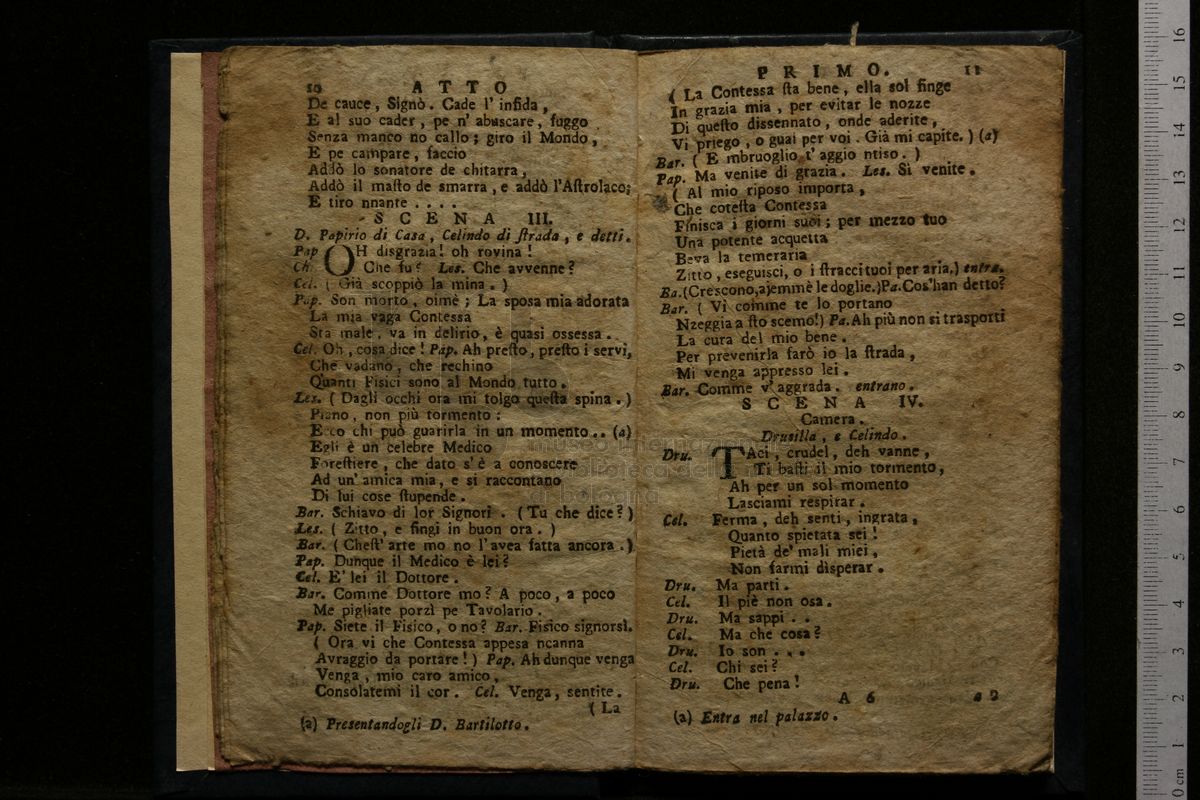 10 ATTO
De cauce, Signò. Cade l' infida,
E al suo cader, pe n' abuscare, fuggo
Senza manco no callo; giro il Mondo,
E pe campare, faccio
Addò lo sonatore de chitarra,
Addò il maſto de smarra, e addò l'Aſtrolaco;
E tiro nnante ....
SCENA III.
D. Papirio di Casa, Celindo di ſtrada, e detti.
Pap. OH disgrazia! oh rovina!
Ch. Che fu? Les. Che avvenne?
Cel. ( Già scoppiò la mina. )
Pap. Son morto, oimè; La sposa mia adorata
La mia vaga Contessa
Sta male, va in delirio, è quasi ossessa..
Cel. Oh, cosa dice! Pap. Ah preſto, preſto i servi,
Che vadano, che rechino
Quanti Fisici sono al Mondo tutto.
Les. ( Dagli occhi ora mi tolgo queſta spina. )
Piano, non più tormento:
Ecco chi può guarirla in un momento.. (a)
Egli è un celebre Medico
Foreſtiere, che dato s' è a conoscere
Ad un' amica mia, e si raccontano
Di lui cose ſtupende.
Bar. Schiavo di lor Signori. (Tu che dice?)
Les. ( Zitto, e fingi in buon ora. )
Bar. ( Cheſt' arte mo no l' avea fatta ancora. )
Pap. Dunque il Medico è lei?
Cel. E' lei il Dottore.
Bar. Comme Dottore mo? A poco, a poco
Me pigliate porzì pe Tavolario.
Pap. Siete il Fisico, o no? Bar. Fisico signorsì.
( Ora vi che Contessa appesa ncanna
Avraggio da portare!) Pap. Ah dunque venga
Venga, mio caro amico,
Consolatemi il cor. Cel. Venga, sentite.
( La
(a) Presentandogli D. Bartilotto.
PRIMO. 11
( La Contessa ſta bene, ella sol finge
In grazia mia, per evitar le nozze
Di queſto dissennato, onde aderite,
Vi priego, o guai per voi. Già mi capite.) (a)
Bar. ( E mbruoglio t' aggio ntiso. )
Pap. Ma venite di grazia. Les. Sì venite.
( Al mio riposo importa,
Che coteſta Contessa
Finisca i giorni suoi; per mezzo tuo
Una potente acquetta
Beva la temeraria
Zitto, eseguisci, o i ſtracci tuoi per aria.) entra.
Ba. (Crescono, ajemmè le doglie.) Pa. Cos'han detto?
Bar. ( Vi comme te lo portano
Nzeggia a ſto scemo!) Pa. Ah più non si trasporti
La cura del mio bene.
Per prevenirla farò io la ſtrada,
Mi venga appresso lei.
Bar. Comme v' aggrada. entrano.
SCENA IV.
Camera.
Drusilla, e Celindo.
Dru. TAci, crudel, deh vanne,
Ti baſti il mio tormento,
Ah per un sol momento
Lasciami respirar.
Cel. Ferma, deh senti, ingrata,
Quanto spietata sei!
Pietà de' mali miei,
Non farmi disperar.
Dru. Ma parti.
Cel. Il piè non osa.
Dru. Ma sappi ..
Cel. Ma che cosa?
Dru. Io son ...
Cel. Chi sei?
Dru. Che pena!
A 6
(a) Entra nel palazzo.